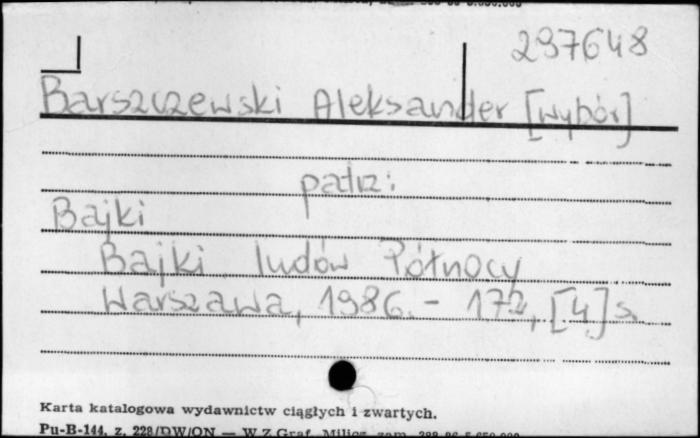 297648
Barszczewski Aleksander [wybór]
patrz:
Bajki
Bajki ludów Północy
Warszawa, 1986. - 172, [4] s.
Karta katalogowa wydawnictw ciągłych i zwartych.
Pu-B-144, z. 228/DW/ON — W.Z.Graf.